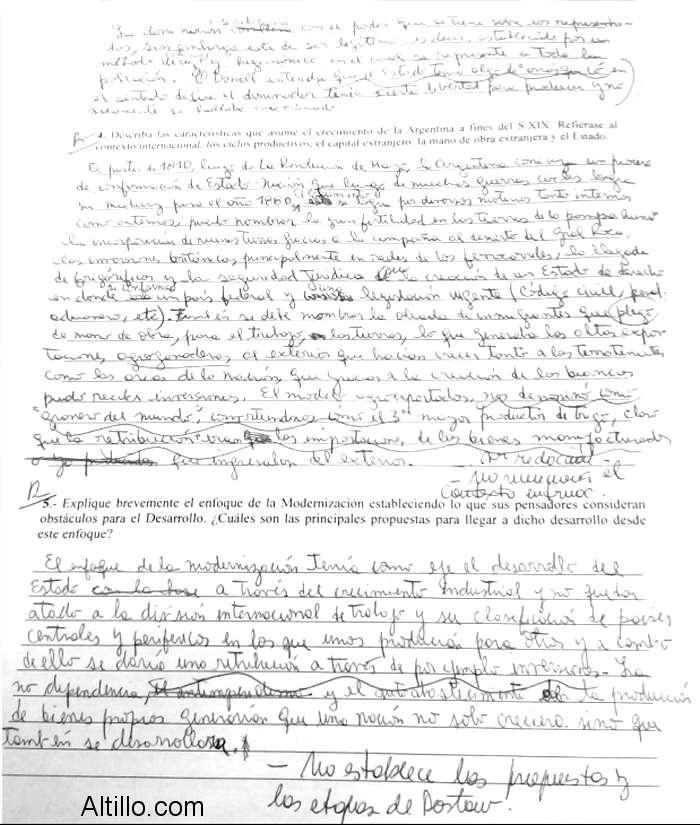 con el poder que se tiene sobre los represento-
dos, sin embargo este de ser legítimo es decir, establecido por un
método directo y hegemónico en el cual se represente a toda la
población. O'Donell entendía que el Estado tenía algo de
el sentido define el dominador tenía cierta libertad para
4. Describa las características que asume el crecimiento de la Argentina a fines del S XIX. Refiérase al
contexto internacional, los ciclos productivos, el capital extranjero, la mano de obra extranjera y el Estado.
A partir de 1810, luego de la Revolución de Mayo, la Argentina comienza un proceso
de conformación de Estado Nación que luego de muchas guerras civiles logra
su madurez para el año 1880, se logra por diversos motivos tanto internos
como externos: puedo nombrar la gran fertilidad en las tierras de la pampa húmeda
la incorporación de nuevas tierras gracias a la campaña al desierto del Gral Roca,
las inversiones británicas principalmente en redes de los ferrocarriles, la llegada
de frigoríficos y la seguridad jurídica la creación de un Estado de derecho
en donde se conforma un país federal y una legislación vigente (Código civil, penal
aduanero, etc). También se debe nombrar la oleada de inmigrantes que
de mano de obra, para el trabajo, las tierras, lo que generaba las altas expor-
taciones agroganaderas al exterior que hacían crecer tanto a los terratenientes
como las arcas de la nación, que gracias a la creación de los bancos
pudo recibir inversiones. El modelo agroexportador, nos denominó como
"granero del mundo", convirtiéndonos como el 3er mayor productor de trigo, claro
que la retribución eran las importaciones de los bienes manufacturados
que ingresaban del exterior.
- No menciona el
Contexto
5.- Explique brevemente el enfoque de la Modernización estableciendo lo que sus pensadores consideran
obstáculos para el Desarrollo. ¿Cuáles son las principales propuestas para llegar a dicho desarrollo desde
este enfoque?
El enfoque de la modernización tenía como eje el desarrollo del
Estado a través del crecimiento industrial y no quedar
atado a la división internacional de trabajo y su clasificación de países
centrales y periféricos en los que unos producían para otros y a cambio
de ello se daría una retribución a través de por ejemplo inversiones. La
no dependencia, y el autoabastecimiento de la producción
de bienes propios generarían que una nación no solo creciera sino que
también se desarrollara.
- No establece las propuestas y
las etapas de Rostow.
Altillo.com